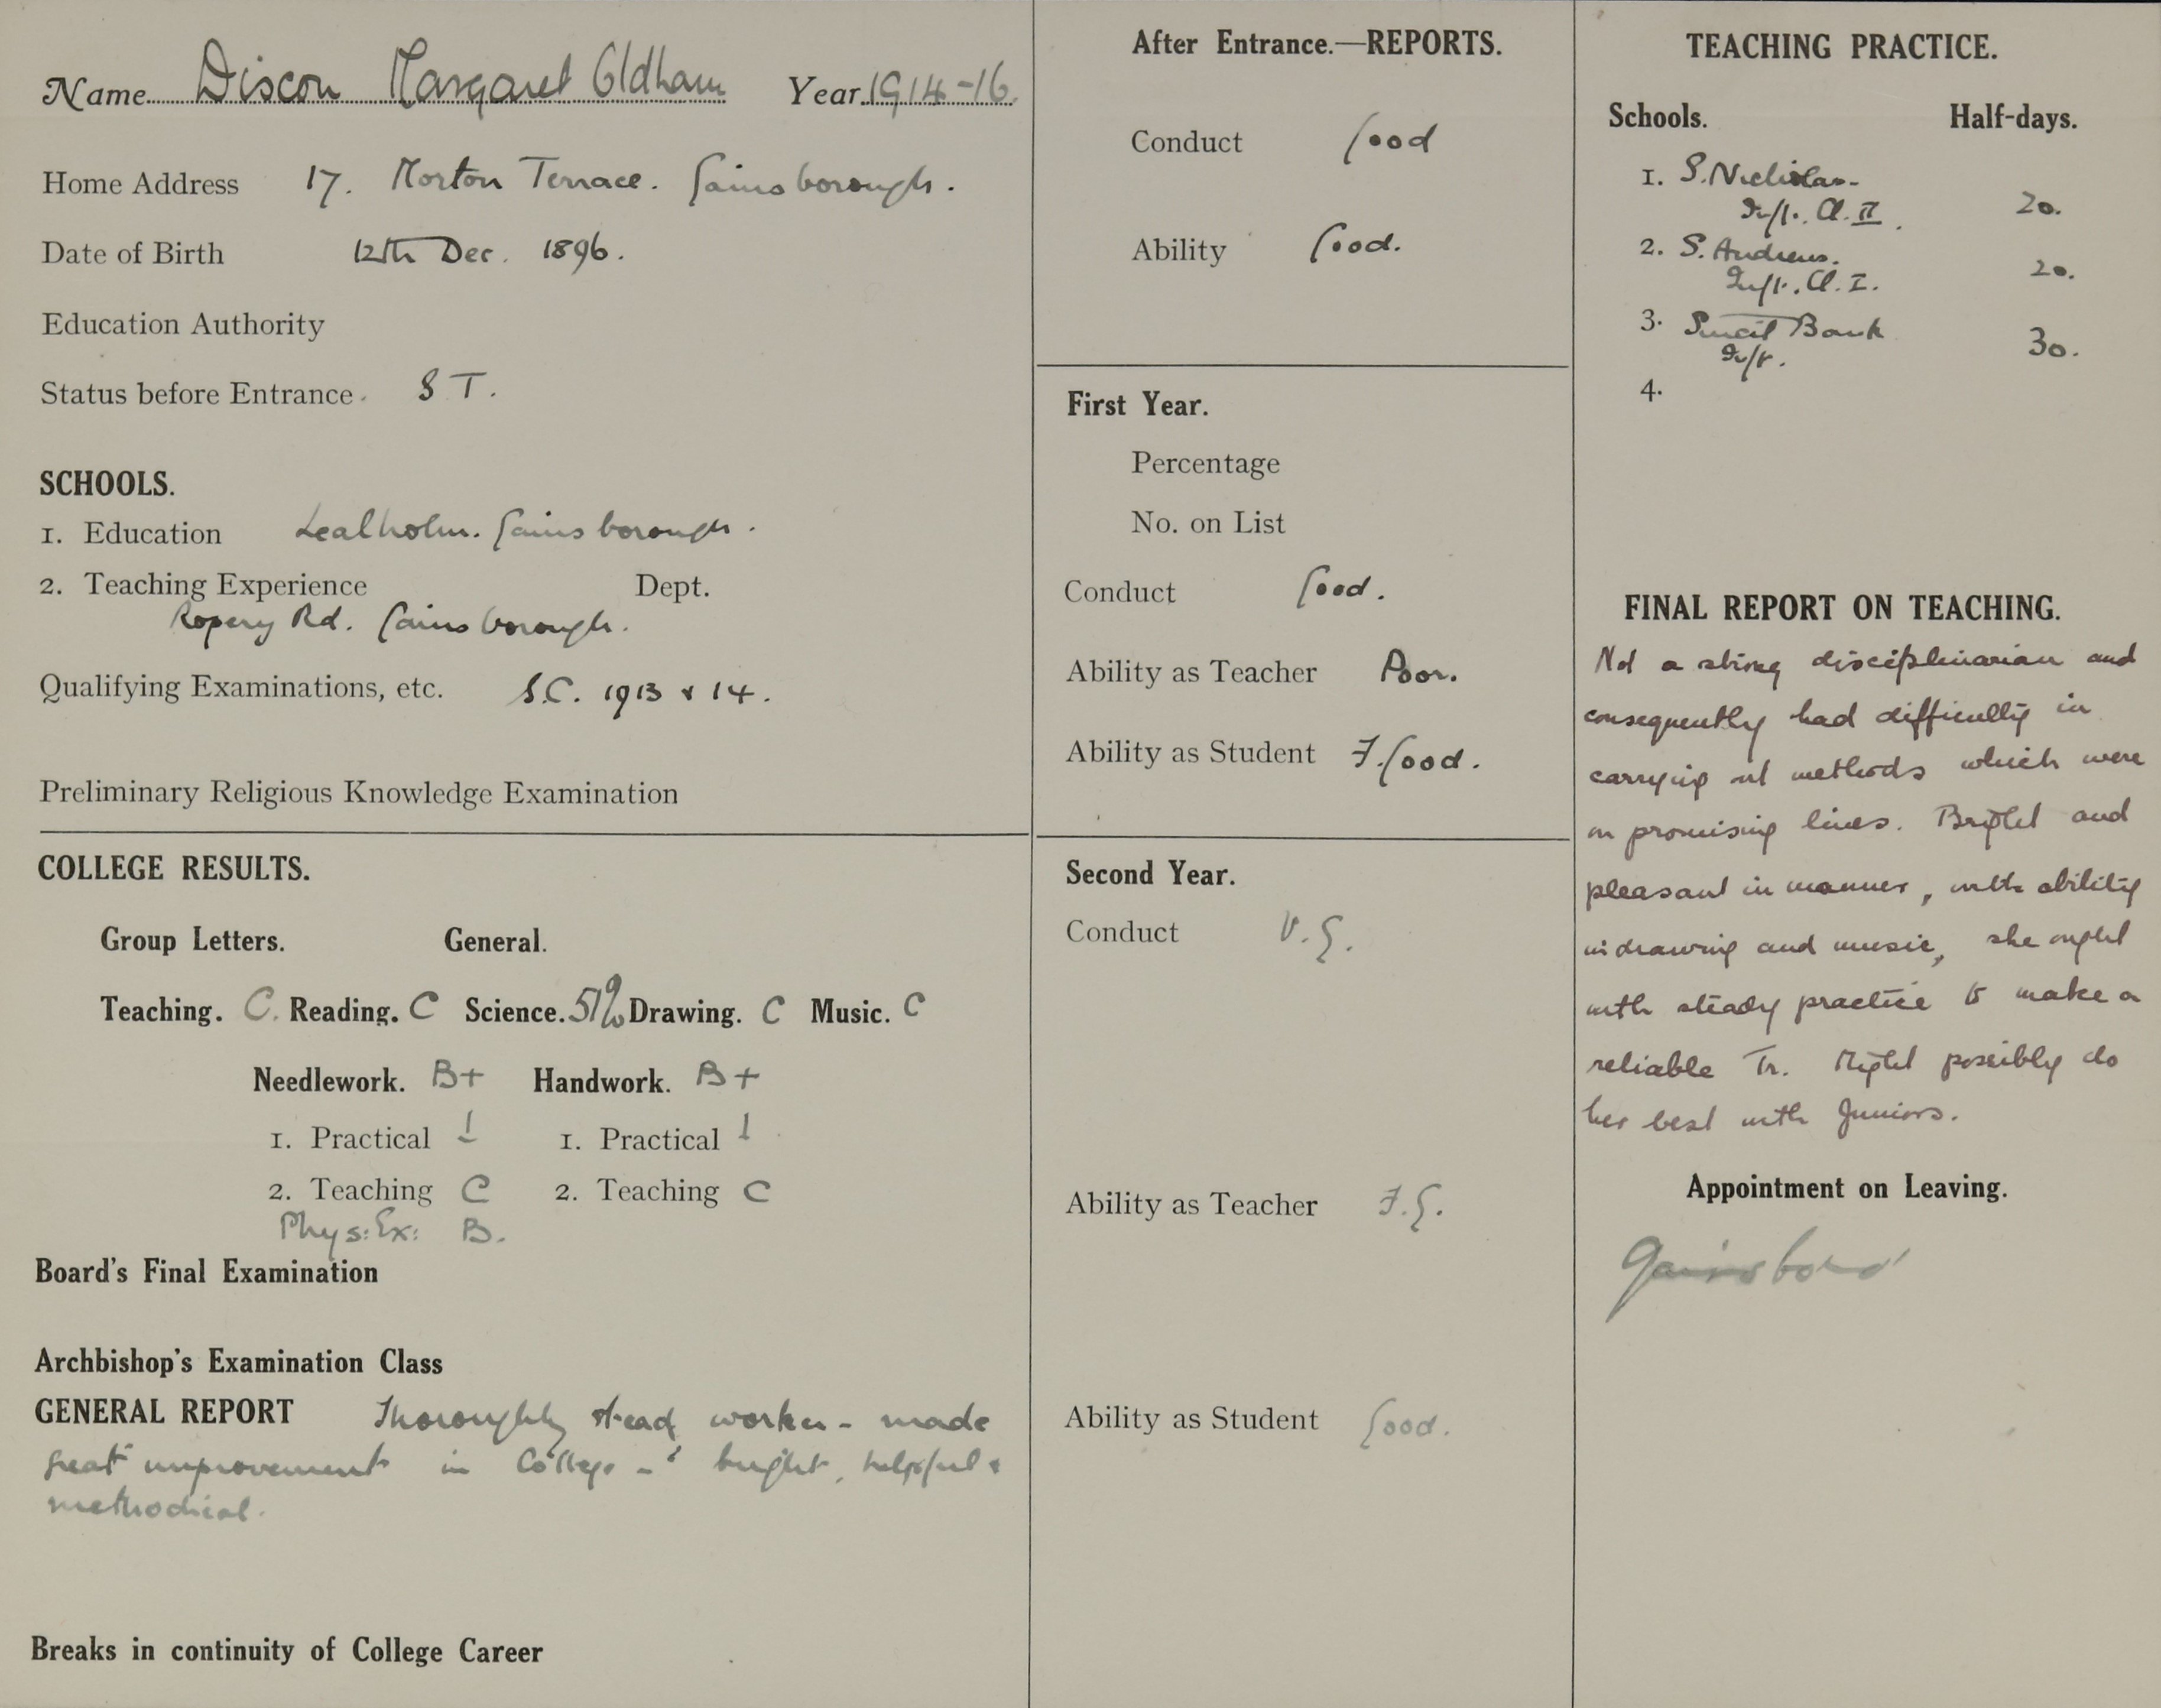 Name Discon Margaret Oldham Year 1914-16.
Home Address 17. Morton Terrace. Gainsborough.
Date of Birth 12th Dec. 1896.
Education Authority
Status before Entrance. S T.
SCHOOLS.
1. Education Lealholm. Gainsborough.
2. Teaching Experience Dept.
Ropery Rd. Gainsborough.
Qualifying Examinations, etc. S.C. 1913 & 14.
Preliminary Religious Knowledge Examination
COLLEGE RESULTS.
Group Letters. General.
Teaching. C. Reading. C Science. 51% Drawing. C Music. C
Needlework. B+ Handwork. B+
1. Practical 1 1. Practical 1
2. Teaching C 2. Teaching C
Phys: Ex: B.
Board's Final Examination
Archbishop's Examination Class
GENERAL REPORT Thoroughly stead worker - made
great improvement in College - bright, helpful &
methodical.
Breaks in continuity of College Career
After Entrance.—REPORTS.
Conduct Good
Ability Good.
First Year.
Percentage
No. on List
Conduct Good.
Ability as Teacher Poor.
Ability as Student F. Good.
Second Year.
Conduct V.G.
Ability as Teacher F.G.
Ability as Student Good.
TEACHING PRACTICE.
Schools. Half-days.
1. S. Nicholas-
Inft. Cl. II. 20.
2. S. Andrews.
Inft. Cl. I. 20.
3. Sincil Bank
Inft. 30.
4.
FINAL REPORT ON TEACHING.
Not a strong disciplinarian and
consequently had difficulty in
carrying out methods which were
on promising lines. Bright and
pleasant in manner, with ability
in drawing and music, she ought
with steady practice to make a
reliable Tr. Might possibly do
her best with Juniors.
Appointment on Leaving.
Gainsboro'